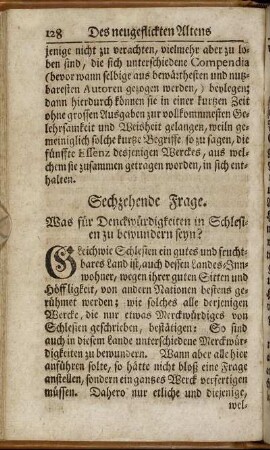 128 Des neugeflickten Altens
jenige nicht zu verachten, vielmehr aber zu lo-
ben sind, die sich unterschiedene Compendia
(bevor wann selbige aus bewährtesten und nutz-
baresten Autoren gezogen werden,) beylegen;
dann hierdurch können sie in einer kurtzen Zeit
ohne grossen Ausgaben zur vollkommnesten Ge-
lehrsamkeit und Weisheit gelangen, weiln ge-
meiniglich solche kurtze Begriffe so zu sagen, die
fünffte Essenz desjenigen Werckes, aus wel-
chem sie zusammen getragen worden, in sich ent-
halten.
Sechzehende Frage.
Was für Denckwürdigkeiten in Schlesi-
en zu bewundern seyn?
Gleichwie Schlesien ein gutes und frucht-
bares Land ist, auch dessen Landes-Inn-
wohner, wegen ihrer guten Sitten und
Höffligkeit, von andern Nationen bestens ge-
rühmet werden; wie solches alle derjenigen
Wercke, die nur etwas Merckwürdiges von
Schlesien geschrieben, bestätigen: So sind
auch in diesem Lande unterschiedene Merckwür-
digkeiten zu bewundern. Wann aber alle hier
anführen solte, so hätte nicht bloß eine Frage
anstellen, sondern ein gantzes Werck verfertigen
müssen. Dahero nur etliche und diejenige,
wel-